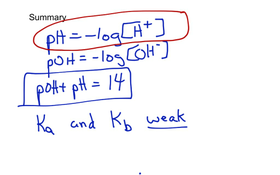 Summary
pH = -log[H⁺]
pOH = -log[OH⁻]
pOH + pH = 14
Kₐ and K_b weak